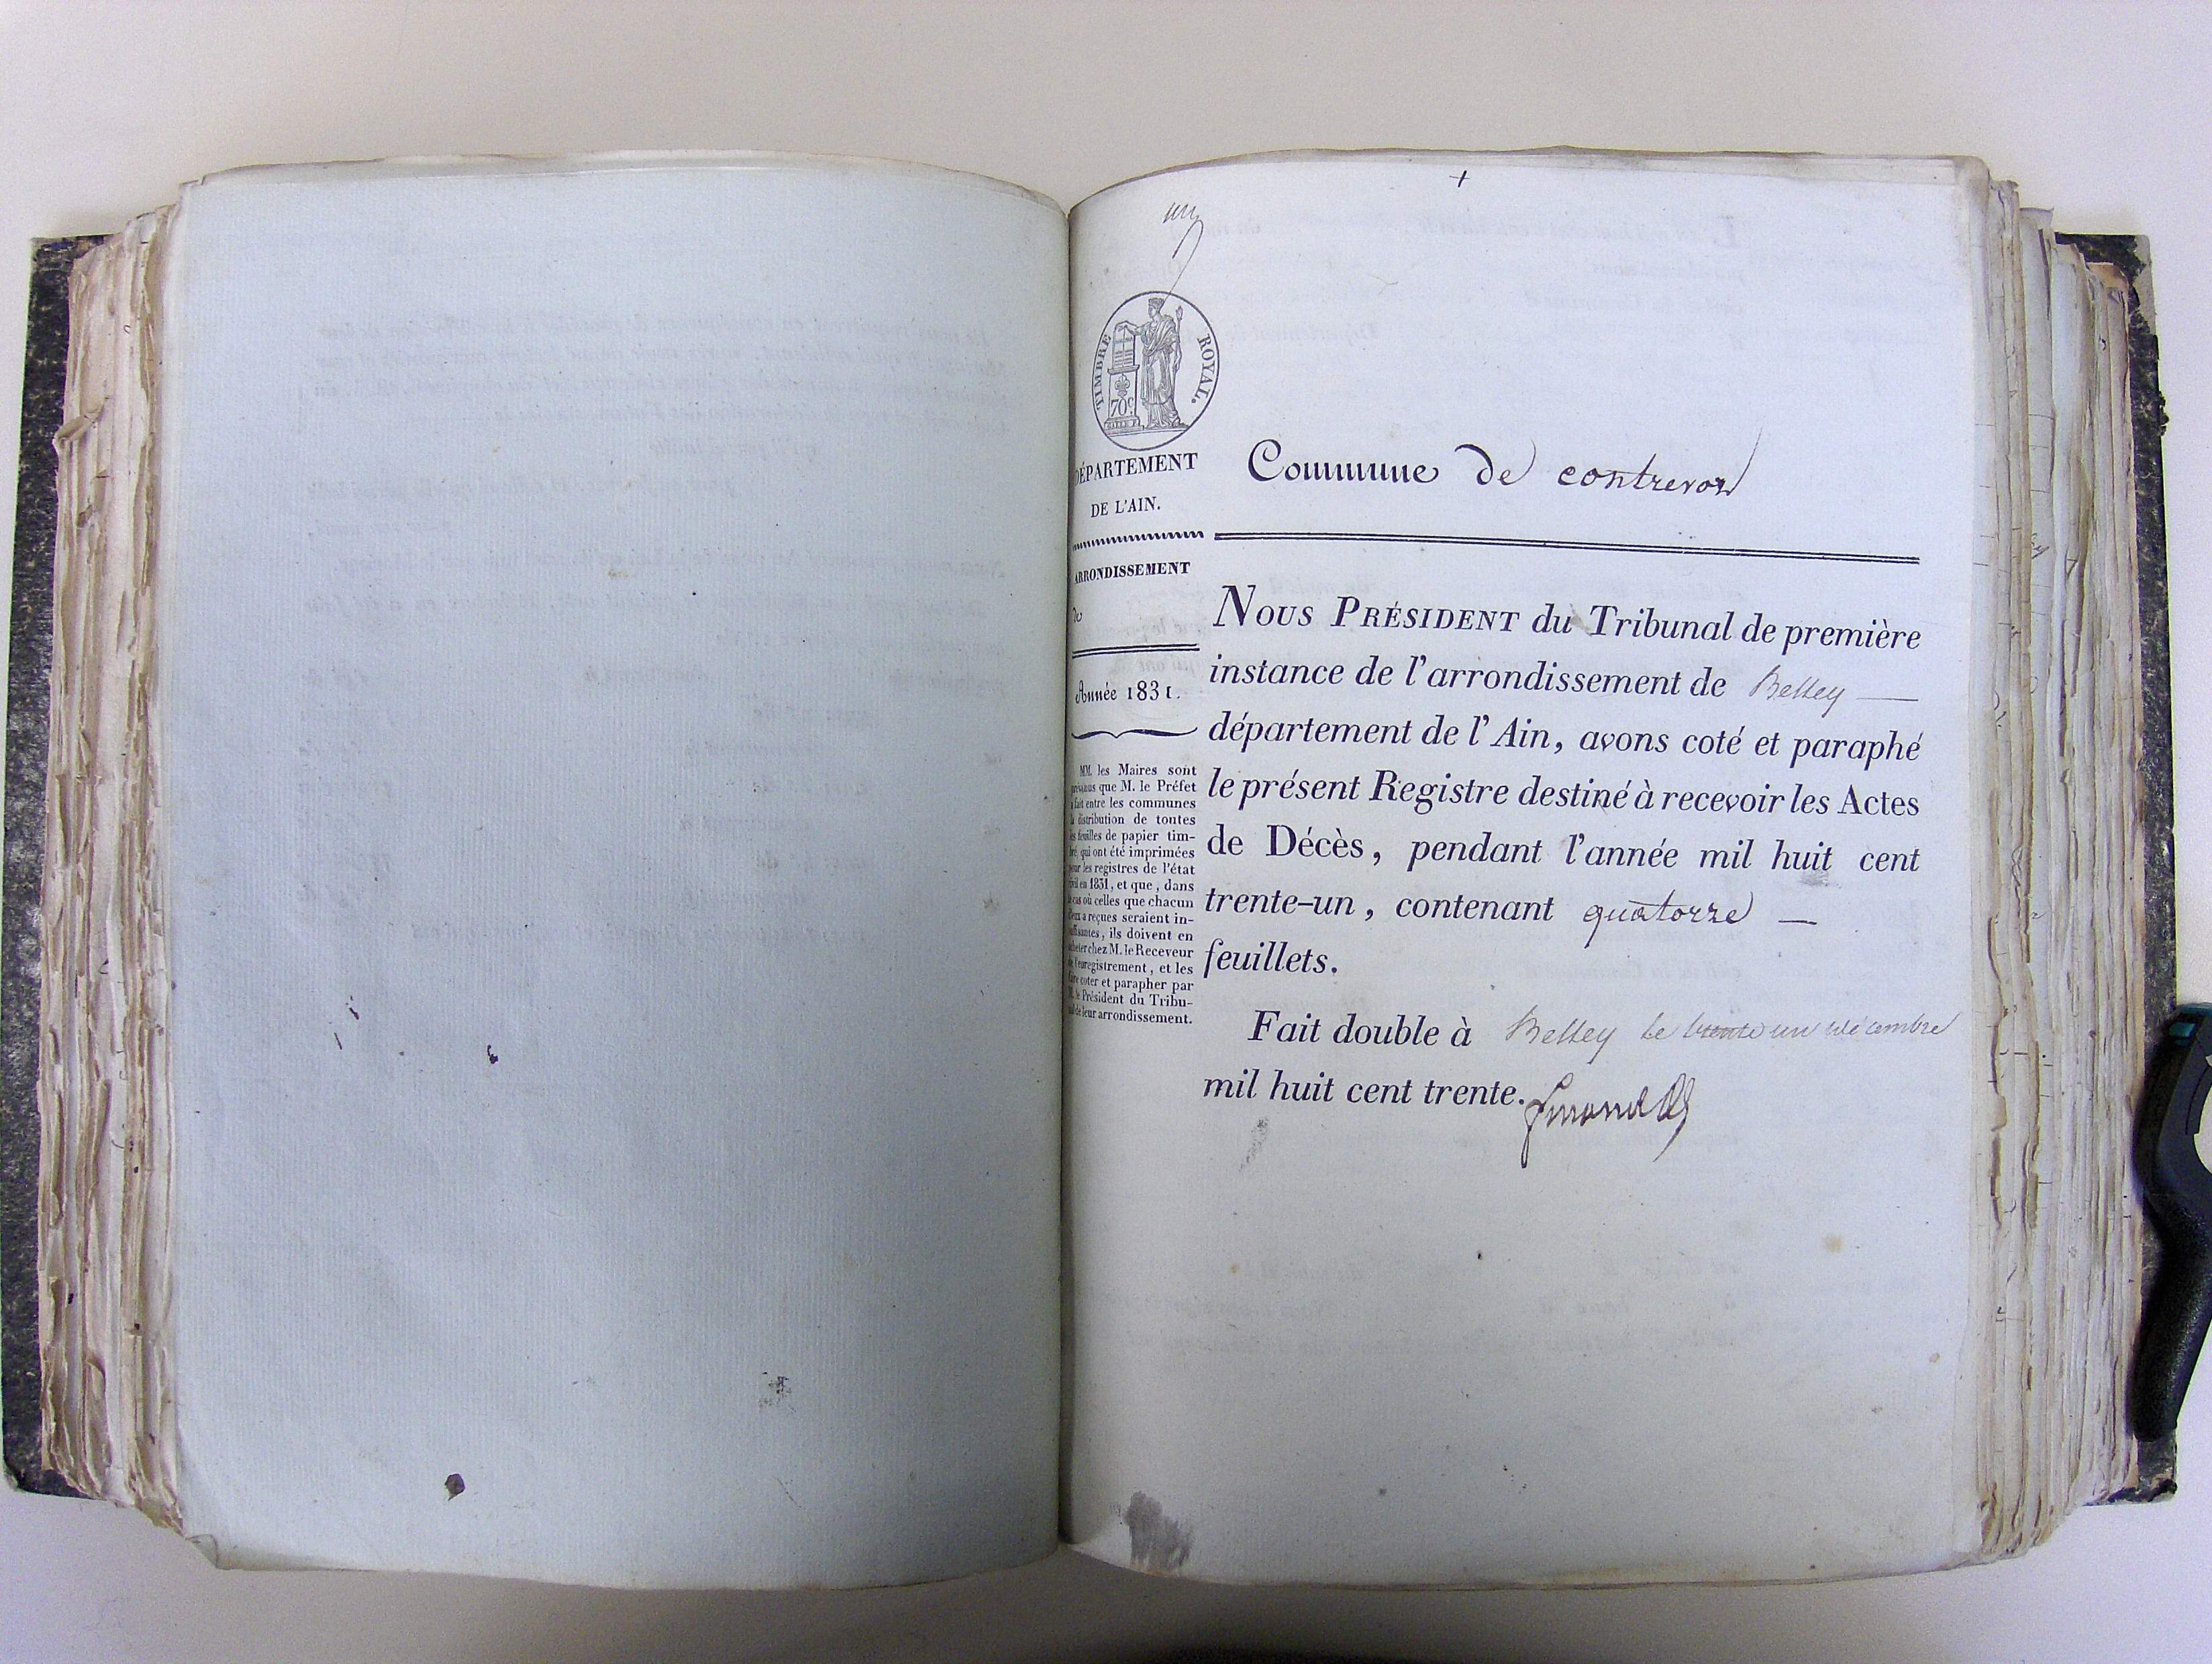 un
TIMBRE ROYAL.
70c.
DÉPARTEMENT
DE L'AIN.
ARRONDISSEMENT
de
Année 1831.
MM. les Maires sont
prévenus que M. le Préfet
a fait entre les communes
la distribution de toutes
les feuilles de papier tim-
bré, qui ont été imprimées
pour les registres de l'état
civil en 1831, et que, dans
le cas où celles que chacun
d'eux a reçues seraient in-
suffisantes, ils doivent en
acheter chez M. le Receveur
de l'enregistrement, et les
faire coter et parapher par
M. le Président du Tribu-
nal de leur arrondissement.
Commune de contrevoz
NOUS PRÉSIDENT du Tribunal de première
instance de l'arrondissement de Belley
département de l'Ain, avons coté et paraphé
le présent Registre destiné à recevoir les Actes
de Décès, pendant l'année mil huit cent
trente-un, contenant quatorze
feuillets.
Fait double à Belley le trente un décembre
mil huit cent trente.